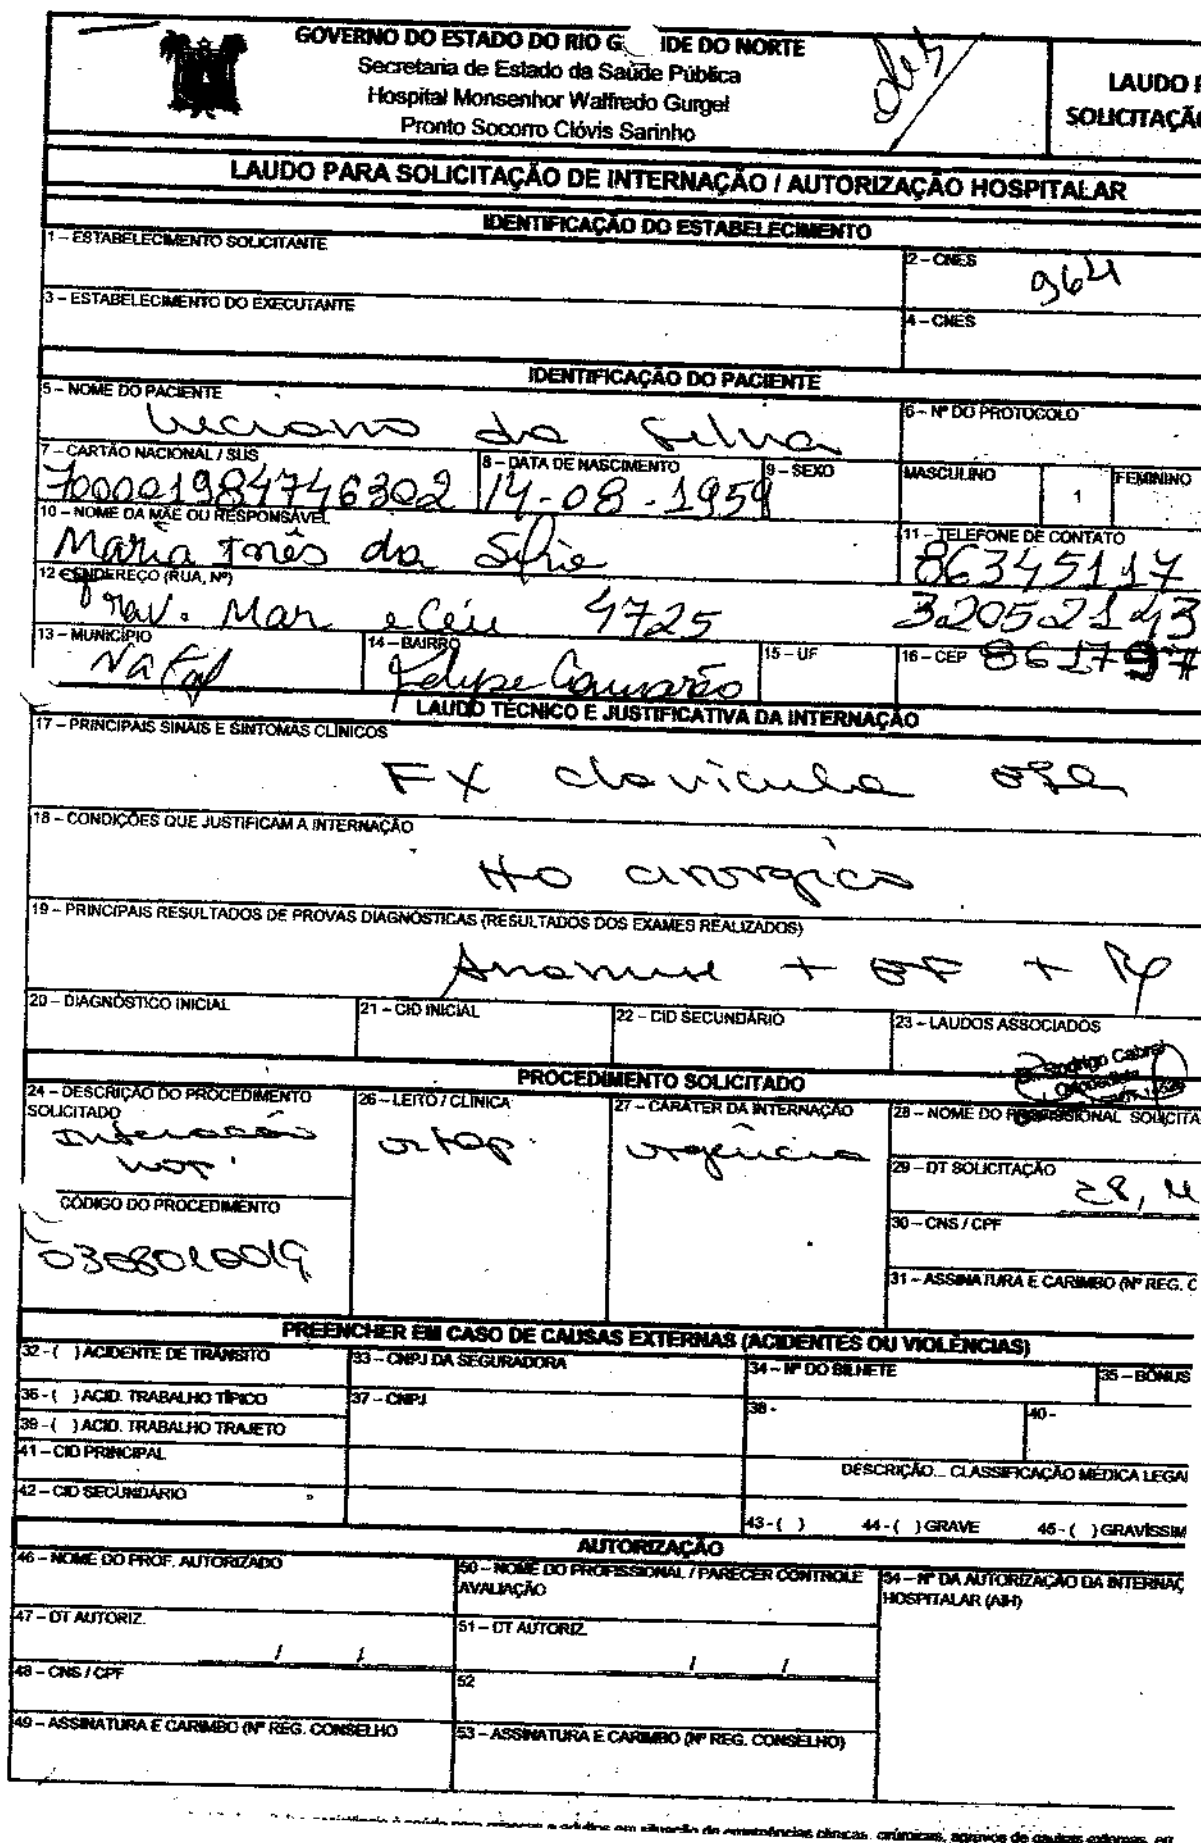 GOVERNO DO ESTADO DO RIO G IDE DO NORTE
Secretaria de Estado da Saúde Pública
Hospital Monsenhor Walfredo Gurgel
Pronto Socorro Clóvis Sarinho
LAUDO
SOLICITAÇÃ
LAUDO PARA SOLICITAÇÃO DE INTERNAÇÃO / AUTORIZAÇÃO HOSPITALAR
IDENTIFICAÇÃO DO ESTABELECIMENTO
1 – ESTABELECIMENTO SOLICITANTE
2 – CNES
964
3 – ESTABELECIMENTO DO EXECUTANTE
4 – CNES
IDENTIFICAÇÃO DO PACIENTE
5 – NOME DO PACIENTE
Luciano da Silva
6 – Nº DO PROTOCOLO
7 – CARTÃO NACIONAL / SUS
700001984746302
8 – DATA DE NASCIMENTO
14-08-1959
9 – SEXO
MASCULINO
1
FEMININO
10 – NOME DA MÃE OU RESPONSÁVEL
Maria Inês da
11 – TELEFONE DE CONTATO
86345117
12 – ENDEREÇO (RUA, Nº)
Trav. Mar e Céu 4725
3205.2143
13 – MUNICÍPIO
Natal
14 – BAIRRO
Felipe Camarão
15 – UF
16 – CEP
LAUDO TÉCNICO E JUSTIFICATIVA DA INTERNAÇÃO
17 – PRINCIPAIS SINAIS E SINTOMAS CLÍNICOS
FX clavicula
18 – CONDIÇÕES QUE JUSTIFICAM A INTERNAÇÃO
tto cirurgico
19 – PRINCIPAIS RESULTADOS DE PROVAS DIAGNÓSTICAS (RESULTADOS DOS EXAMES REALIZADOS)
+ EF +
20 – DIAGNÓSTICO INICIAL
21 – CID INICIAL
22 – CID SECUNDÁRIO
23 – LAUDOS ASSOCIADOS
Dr. Rodrigo Cabral
Ortopedista
PROCEDIMENTO SOLICITADO
24 – DESCRIÇÃO DO PROCEDIMENTO
SOLICITADO
Internação
26 – LEITO / CLÍNICA
ortop
27 – CARÁTER DA INTERNAÇÃO
urgência
28 – NOME DO PROFISSIONAL SOLICITA
29 – DT SOLICITAÇÃO
CÓDIGO DO PROCEDIMENTO
0308010019
30 – CNS / CPF
31 – ASSINATURA E CARIMBO (Nº REG. C
PREENCHER EM CASO DE CAUSAS EXTERNAS (ACIDENTES OU VIOLÊNCIAS)
32 - ( ) ACIDENTE DE TRÂNSITO
33 – CNPJ DA SEGURADORA
34 – Nº DO BILHETE
35 – BÔNUS
36 - ( ) ACID. TRABALHO TÍPICO
37 – CNPJ
38 -
40 -
39 - ( ) ACID. TRABALHO TRAJETO
41 – CID PRINCIPAL
DESCRIÇÃO... CLASSIFICAÇÃO MÉDICA LEGAL
42 – CID SECUNDÁRIO
43 - ( )
44 - ( ) GRAVE
45 - ( ) GRAVÍSSIM
AUTORIZAÇÃO
46 – NOME DO PROF. AUTORIZADO
50 – NOME DO PROFISSIONAL / PARECER CONTROLE
AVALIAÇÃO
54 – Nº DA AUTORIZAÇÃO DA INTERNAÇ
HOSPITALAR (AIH)
47 – DT AUTORIZ.
/ /
51 – DT AUTORIZ.
/ /
48 – CNS / CPF
52
49 – ASSINATURA E CARIMBO (Nº REG. CONSELHO
53 – ASSINATURA E CARIMBO (Nº REG. CONSELHO)
à saúde para crianças e adultos em situação de emergências clínicas, cirúrgicas, agravos de causas externas, em